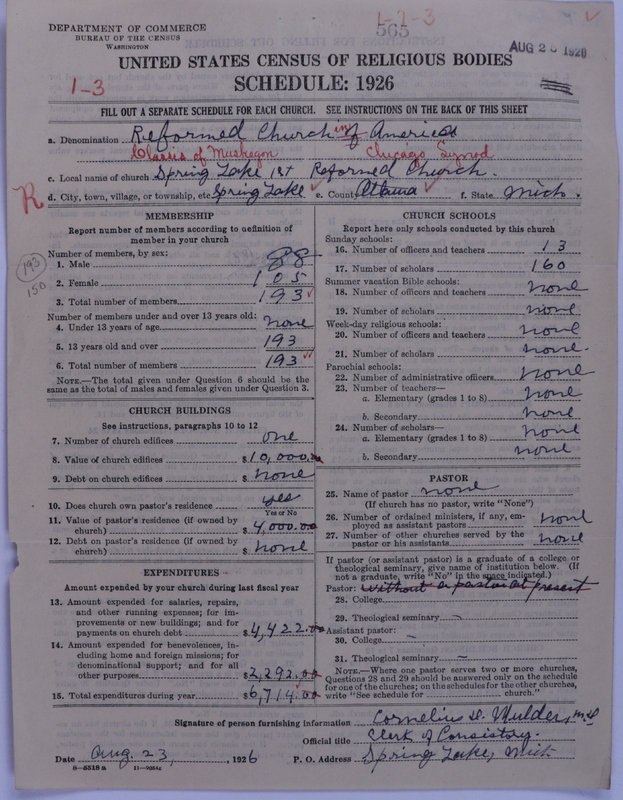 1-2-3
565
DEPARTMENT OF COMMERCE
BUREAU OF THE CENSUS
WASHINGTON
AUG 2 1926
UNITED STATES CENSUS OF RELIGIOUS BODIES
SCHEDULE: 1926
1-3
FILL OUT A SEPARATE SCHEDULE FOR EACH CHURCH. SEE INSTRUCTIONS ON THE BACK OF THIS SHEET
a. Denomination Reformed Church in America
Classis of Muskegon Chicago Synod
c. Local name of church Spring Lake 1st Reformed Church.
R
d. City, town, village, or township, etc. Spring Lake e. County Ottawa f. State Mich.
MEMBERSHIP
Report number of members according to definition of
member in your church
Number of members, by sex:
1. Male 88
2. Female 105
3. Total number of members 193
193
150
Number of members under and over 13 years old:
4. Under 13 years of age none
5. 13 years old and over 193
6. Total number of members 193
NOTE.—The total given under Question 6 should be the
same as the total of males and females given under Question 3.
CHURCH BUILDINGS
See instructions, paragraphs 10 to 12
7. Number of church edifices one
8. Value of church edifices $10,000.00
9. Debt on church edifices $ none
10. Does church own pastor's residence yes
Yes or No
11. Value of pastor's residence (if owned by
church) $4,000.00
12. Debt on pastor's residence (if owned by
church) $ none
EXPENDITURES
Amount expended by your church during last fiscal year
13. Amount expended for salaries, repairs,
and other running expenses; for im-
provements or new buildings; and for
payments on church debt $4,422.00
14. Amount expended for benevolences, in-
cluding home and foreign missions; for
denominational support; and for all
other purposes $2,292.00
15. Total expenditures during year $6,714.00
CHURCH SCHOOLS
Report here only schools conducted by this church
Sunday schools:
16. Number of officers and teachers 13
17. Number of scholars 160
Summer vacation Bible schools:
18. Number of officers and teachers none
19. Number of scholars none
Week-day religious schools:
20. Number of officers and teachers none
21. Number of scholars none
Parochial schools:
22. Number of administrative officers none
23. Number of teachers—
a. Elementary (grades 1 to 8) none
b. Secondary none
24. Number of scholars—
a. Elementary (grades 1 to 8) none
b. Secondary none
PASTOR
25. Name of pastor none
(If church has no pastor, write "None")
26. Number of ordained ministers, if any, em-
ployed as assistant pastors none
27. Number of other churches served by the
pastor or his assistants none
If pastor (or assistant pastor) is a graduate of a college or
theological seminary, give name of institution below. (If
not a graduate, write "No" in the space indicated.)
Pastor: Without a pastor at present
28. College
29. Theological seminary —
Assistant pastor:
30. College —
31. Theological seminary —
NOTE.—Where one pastor serves two or more churches,
Questions 28 and 29 should be answered only on the schedule
for one of the churches; on the schedules for the other churches,
write "See schedule for church."
Signature of person furnishing information Cornelius D. Mulder, M.D.
Official title Clerk of Consistory.
Date Aug 23, 1926 P. O. Address Spring Lake, Mich
8—5518 a 11—9264c